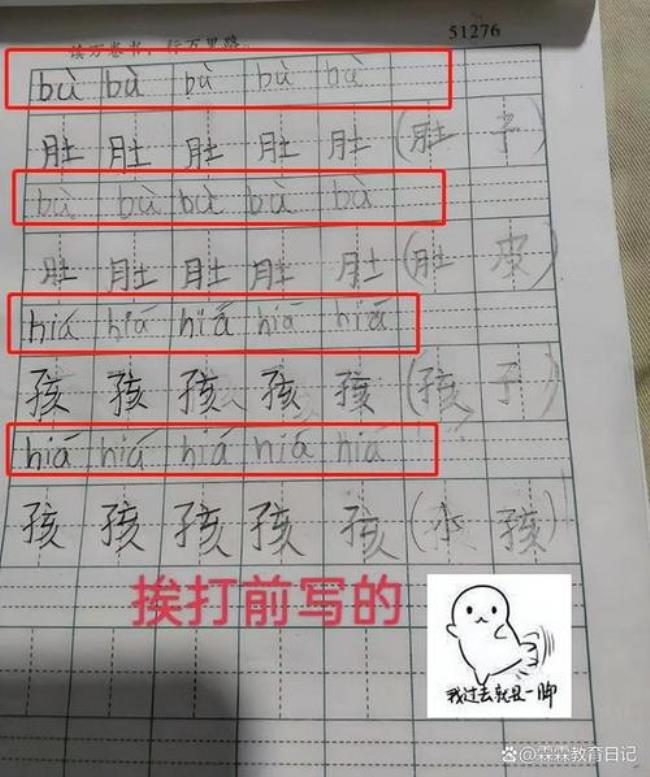 51276
读万卷书,行万里路。
bù bù bù bù bù
肚 肚 肚 肚 肚 (肚 子)
bù bù bù bù bù
肚 肚 肚 肚 肚 (肚 皮)
hiá hiá hiá hiá hiá
孩 孩 孩 孩 孩 (孩 子)
hiá hiá hiá hiá hiá
孩 孩 孩 孩 孩 (小 孩)
挨打前写的
我过去就是一脚
@霖霖教育日记